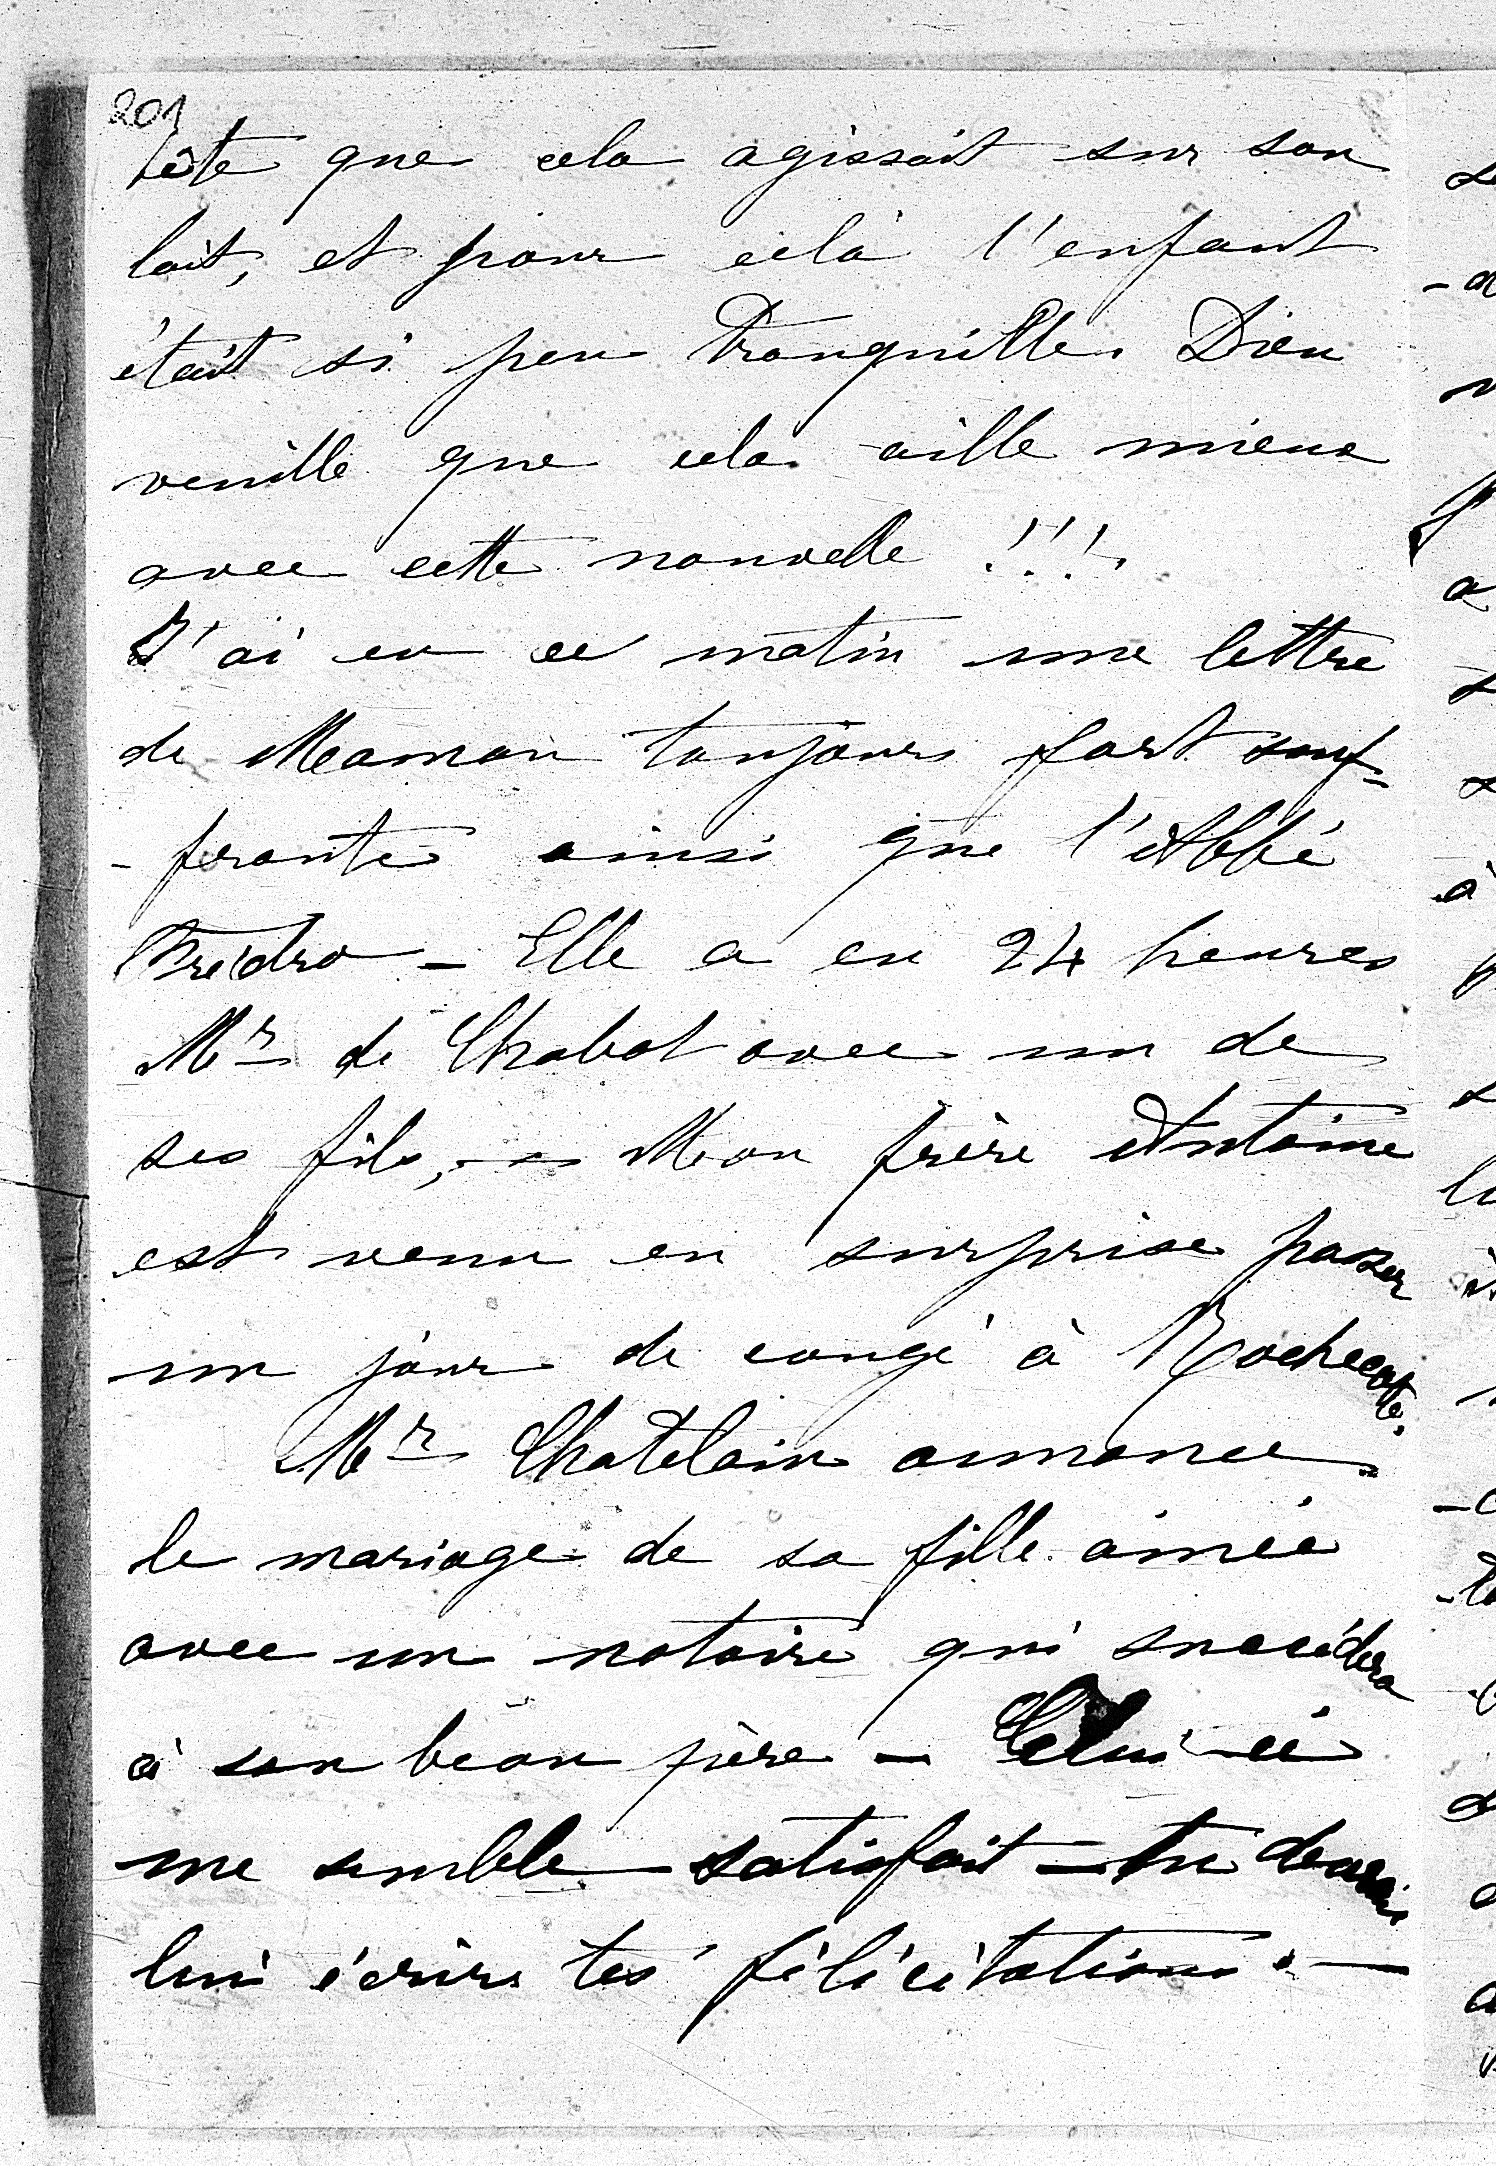 201
tête que cela agissait sur son
lait, et pour cela l'enfant
était si peu tranquille. Dieu
veuille que cela aille mieux
avec cette nouvelle !!!
J'ai eu ce matin une lettre
de Maman toujours fort souf-
-frante ainsi que l'Abbé
Frédro - Elle a eu 24 heures
Mr de Chabot avec un de
ses fils, - Mon frère Antoine
est venu en surprise passer
un jour de congé à Rochecotte.
Mr Chatelain annonce
le mariage de sa fille ainée
avec un notaire qui succédera
à son beau père - Celui-ci
me semble satisfait - tu devrais
lui écrire tes félicitations. -